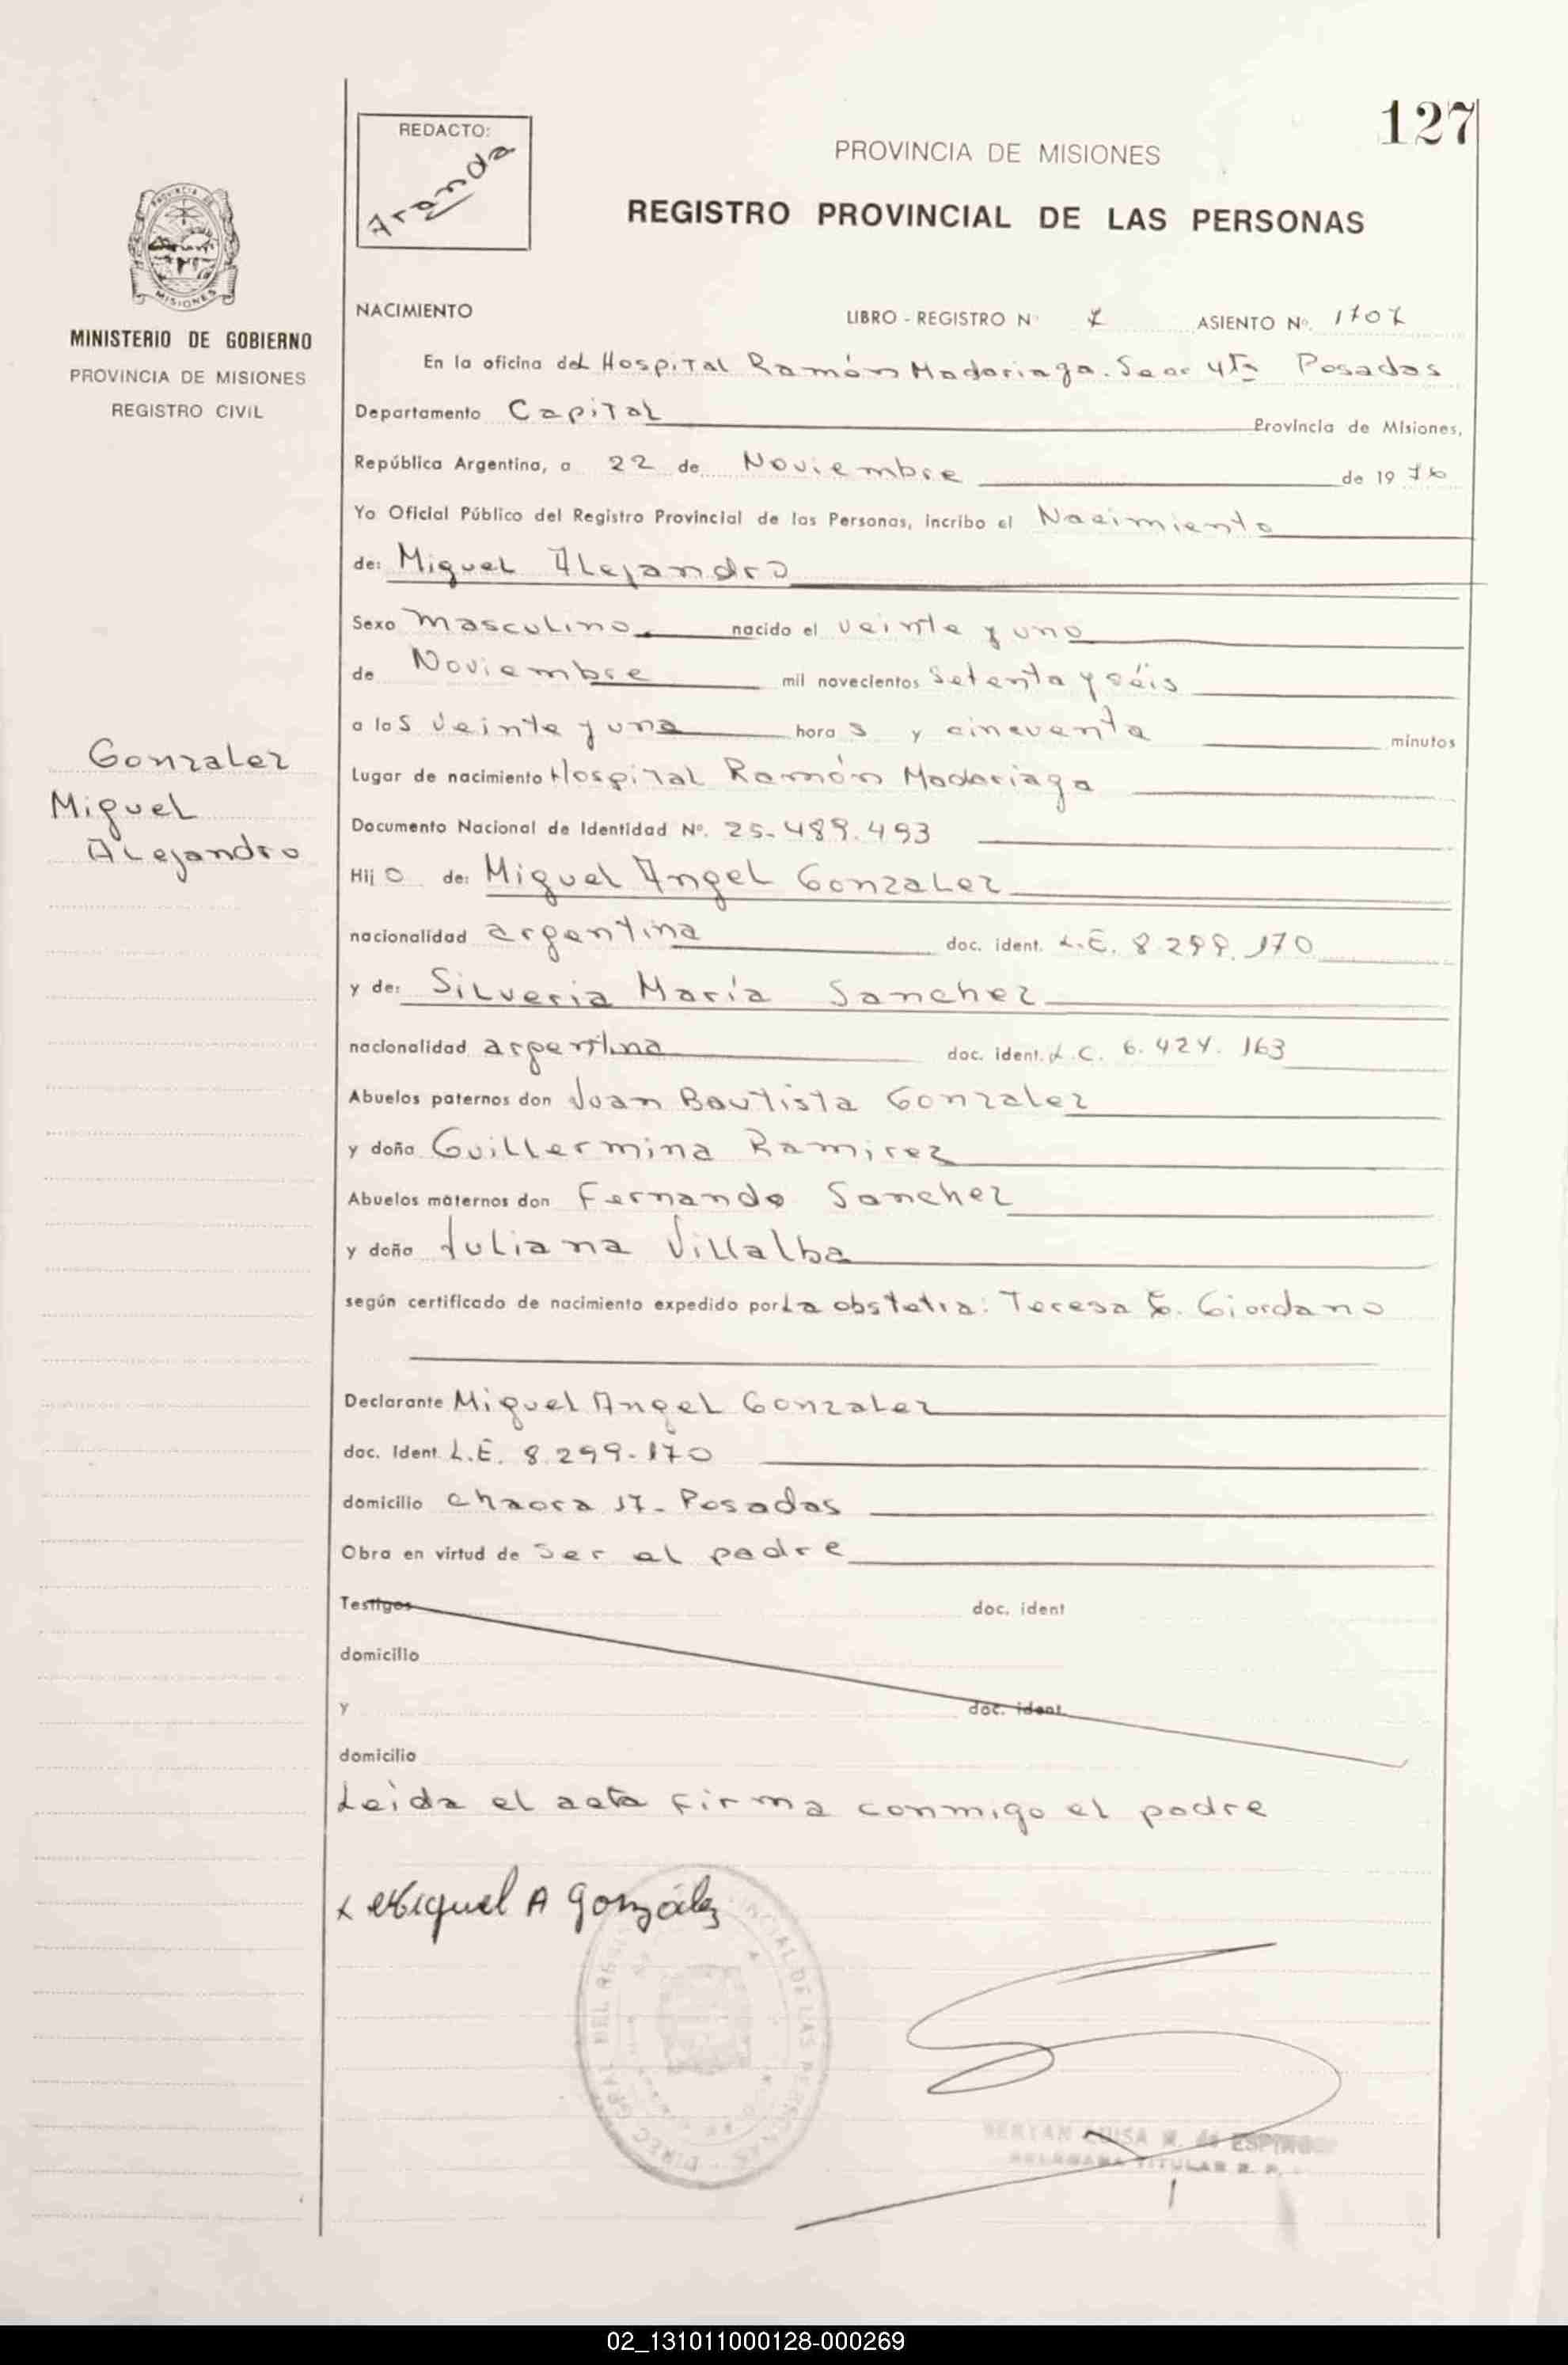 127
REDACTO:
Aranda
PROVINCIA DE MISIONES
REGISTRO PROVINCIAL DE LAS PERSONAS
PROVINCIA DE
MISIONES
MINISTERIO DE GOBIERNO
PROVINCIA DE MISIONES
REGISTRO CIVIL
NACIMIENTO LIBRO - REGISTRO Nº 7 ASIENTO Nº. 1707
En la oficina del Hospital Ramón Madariaga. Secc 4ta Posadas
Departamento Capital Provincia de Misiones,
República Argentina, a 22 de Noviembre de 1976
Yo Oficial Público del Registro Provincial de las Personas, incribo el Nacimiento
de: Miguel Alejandro
Sexo masculino. nacido el veinte y uno
de Noviembre mil novecientos setenta y séis
a las veinte y una horas y cincuenta minutos
Lugar de nacimiento Hospital Ramón Madariaga
Documento Nacional de Identidad Nº. 25.489.493
Hijo de: Miguel Angel Gonzalez
nacionalidad argentina doc. ident. L.E. 8.299.170
y de: Silveria María Sanchez
nacionalidad argentina doc. ident. L.C. 6.424.163
Abuelos paternos don Juan Bautista Gonzalez
y doña Guillermina Ramirez
Abuelos maternos don Fernando Sanchez
y doña Juliana Villalba
según certificado de nacimiento expedido por La obstetra: Teresa E. Giordano
Declarante Miguel Angel Gonzalez
doc. Ident L.E. 8.299.170
domicilio chacra 17- Posadas
Obra en virtud de ser el padre
Testigos doc. ident
domicilio
y doc. ident
domicilio
Leida el acta firma conmigo el padre
Gonzalez
Miguel
Alejandro
x Miguel A González
LUISA M. de
TITULAR R. P.
02_131011000128-000269